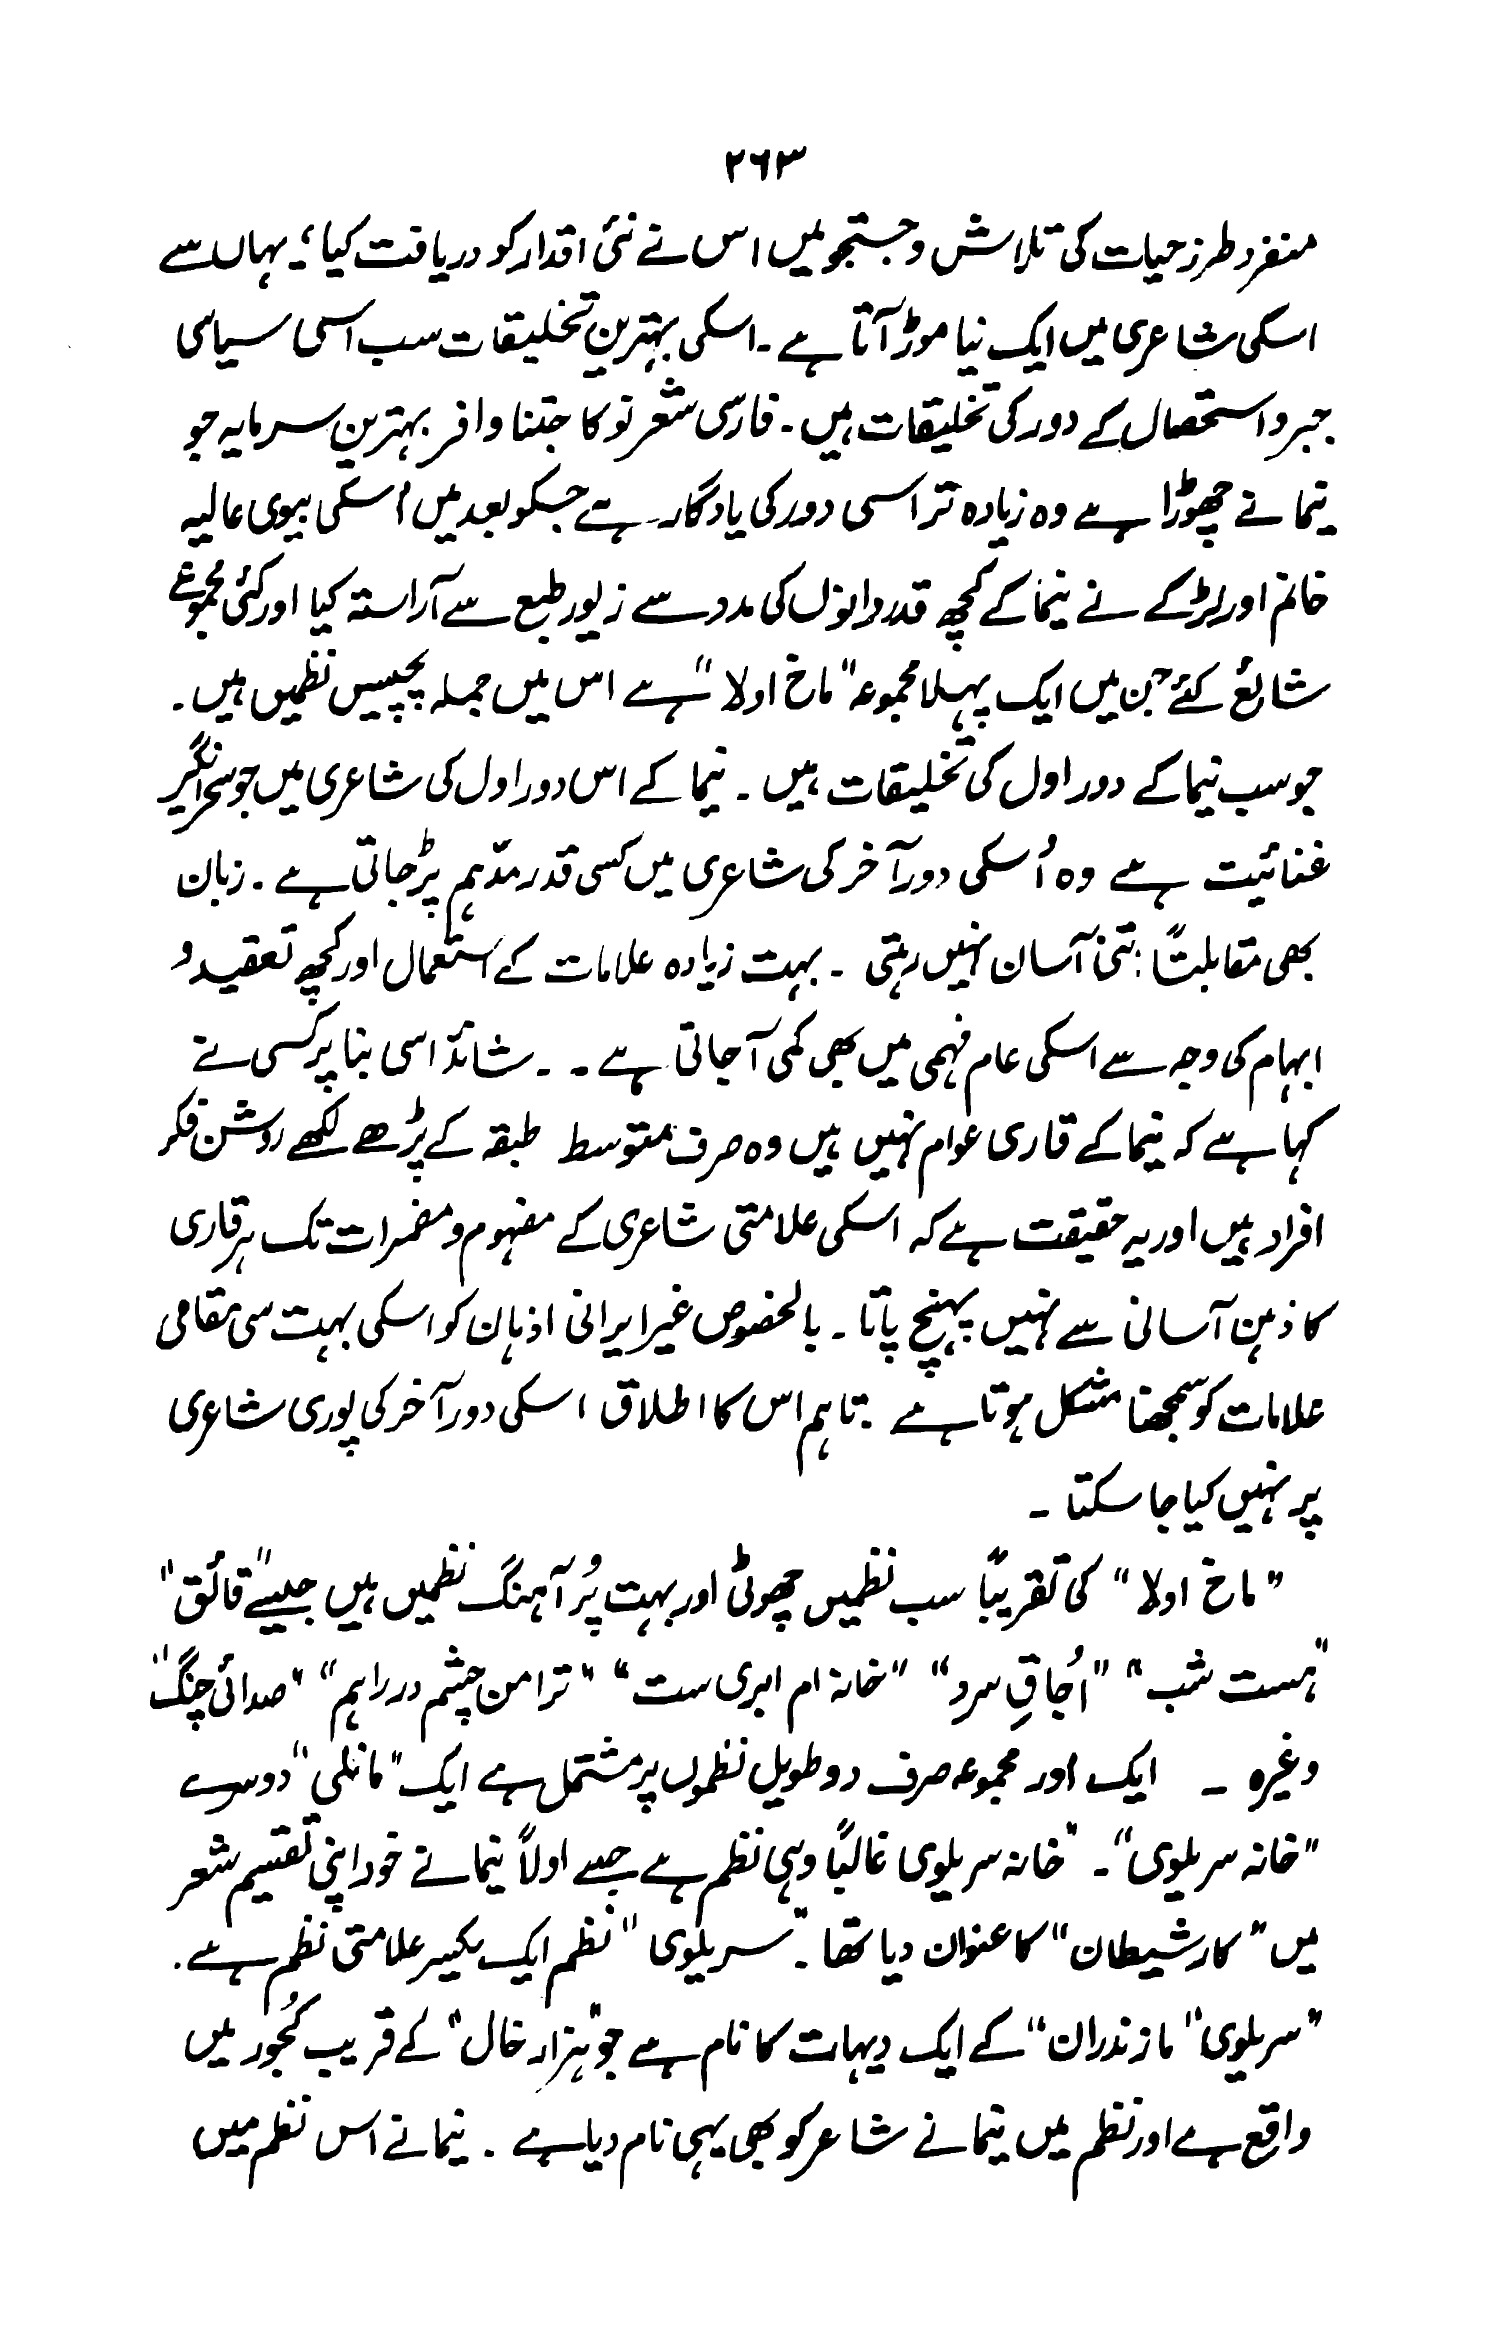 ۲۶۳
منفرد طرز حیات کی تلاش و جستجو میں اس نے نئی اقدار کو دریافت کیا؛ یہاں سے
اسکی شاعری میں ایک نیا موڑ آتا ہے ۔ اسکی بہترین تخلیقات سب اسی سیاسی
جبر و استحصال کے دور کی تخلیقات ہیں ۔ فارسی شعر نو کا جتنا وافر بہترین سرمایہ جو
نیما نے چھوڑا ہے وہ زیادہ تر اسی دور کی یادگار ہے جسکو بعد میں اسکی بیوی عالیہ
خانم اور لڑکے نے نیما کے کچھ قدردانوں کی مدد سے زیور طبع سے آراستہ کیا اور کئی مجموعے
شائع کئے جن میں ایک پہلا مجموعہ "ماخ اولا" ہے اس میں جملہ پچیس نظمیں ہیں ۔
جو سب نیما کے دور اول کی تخلیقات ہیں ۔ نیما کے اس دور اول کی شاعری میں جو سحر انگیز
غنائیت ہے وہ اُسکی دور آخر کی شاعری میں کسی قدر مدّہم پڑ جاتی ہے ۔ زبان
بھی مقابلتاً اتنی آسان نہیں رہتی ۔ بہت زیادہ علامات کے استعمال اور کچھ تعقید و
ابہام کی وجہ سے اسکی عام فہمی میں بھی کمی آ جاتی ہے ۔ ۔ شائد اسی بنا پر کسی نے
کہا ہے کہ نیما کے قاری عوام نہیں ہیں وہ صرف متوسط طبقہ کے پڑھے لکھے روشن فکر
افراد ہیں اور یہ حقیقت ہے کہ اسکی علامتی شاعری کے مفہوم و مضمرات تک ہر قاری
کا ذہن آسانی سے نہیں پہنچ پاتا ۔ بالخصوص غیر ایرانی اذہان کو اسکی بہت سی مقامی
علامات کو سمجھنا مشکل ہوتا ہے ۔ تاہم اس کا اطلاق اسکی دور آخر کی پوری شاعری
پر نہیں کیا جا سکتا ۔
"ماخ اولا" کی تقریباً سب نظمیں چھوٹی اور بہت پُر آہنگ نظمیں ہیں جیسے "قائق"
"ہست شب" "اُجاقِ سرد" "خانہ ام ابری ست" "ترا من چشم در راہم" "صدائی چنگ"
وغیرہ ۔ ایک اور مجموعہ صرف دو طویل نظموں پر مشتمل ہے ایک "مانلی" دوسرے
"خانہ سریلوی" ۔ "خانہ سریلوی غالباً وہی نظم ہے جسے اولاً نیما نے خود اپنی تقسیم شعر
میں "کار شیطان" کا عنوان دیا تھا ۔ "سریلوی" نظم ایک یکسر علامتی نظم ہے ۔
"سریلوی" مازندران" کے ایک دیہات کا نام ہے جو "ہزار خال" کے قریب کُجور میں
واقع ہے اور نظم میں نیما نے شاعر کو بھی یہی نام دیا ہے ۔ نیما نے اس نظم میں